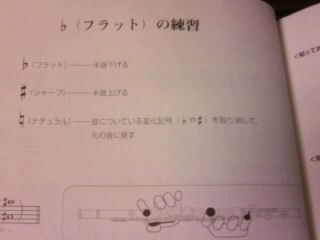 ♭(フラット)の練習
♭(フラット)———半音下げる
♯(シャープ)———半音上げる
♮(ナチュラル)——音についている変化記号(♭や♯)を取り消して、
元の音に戻す